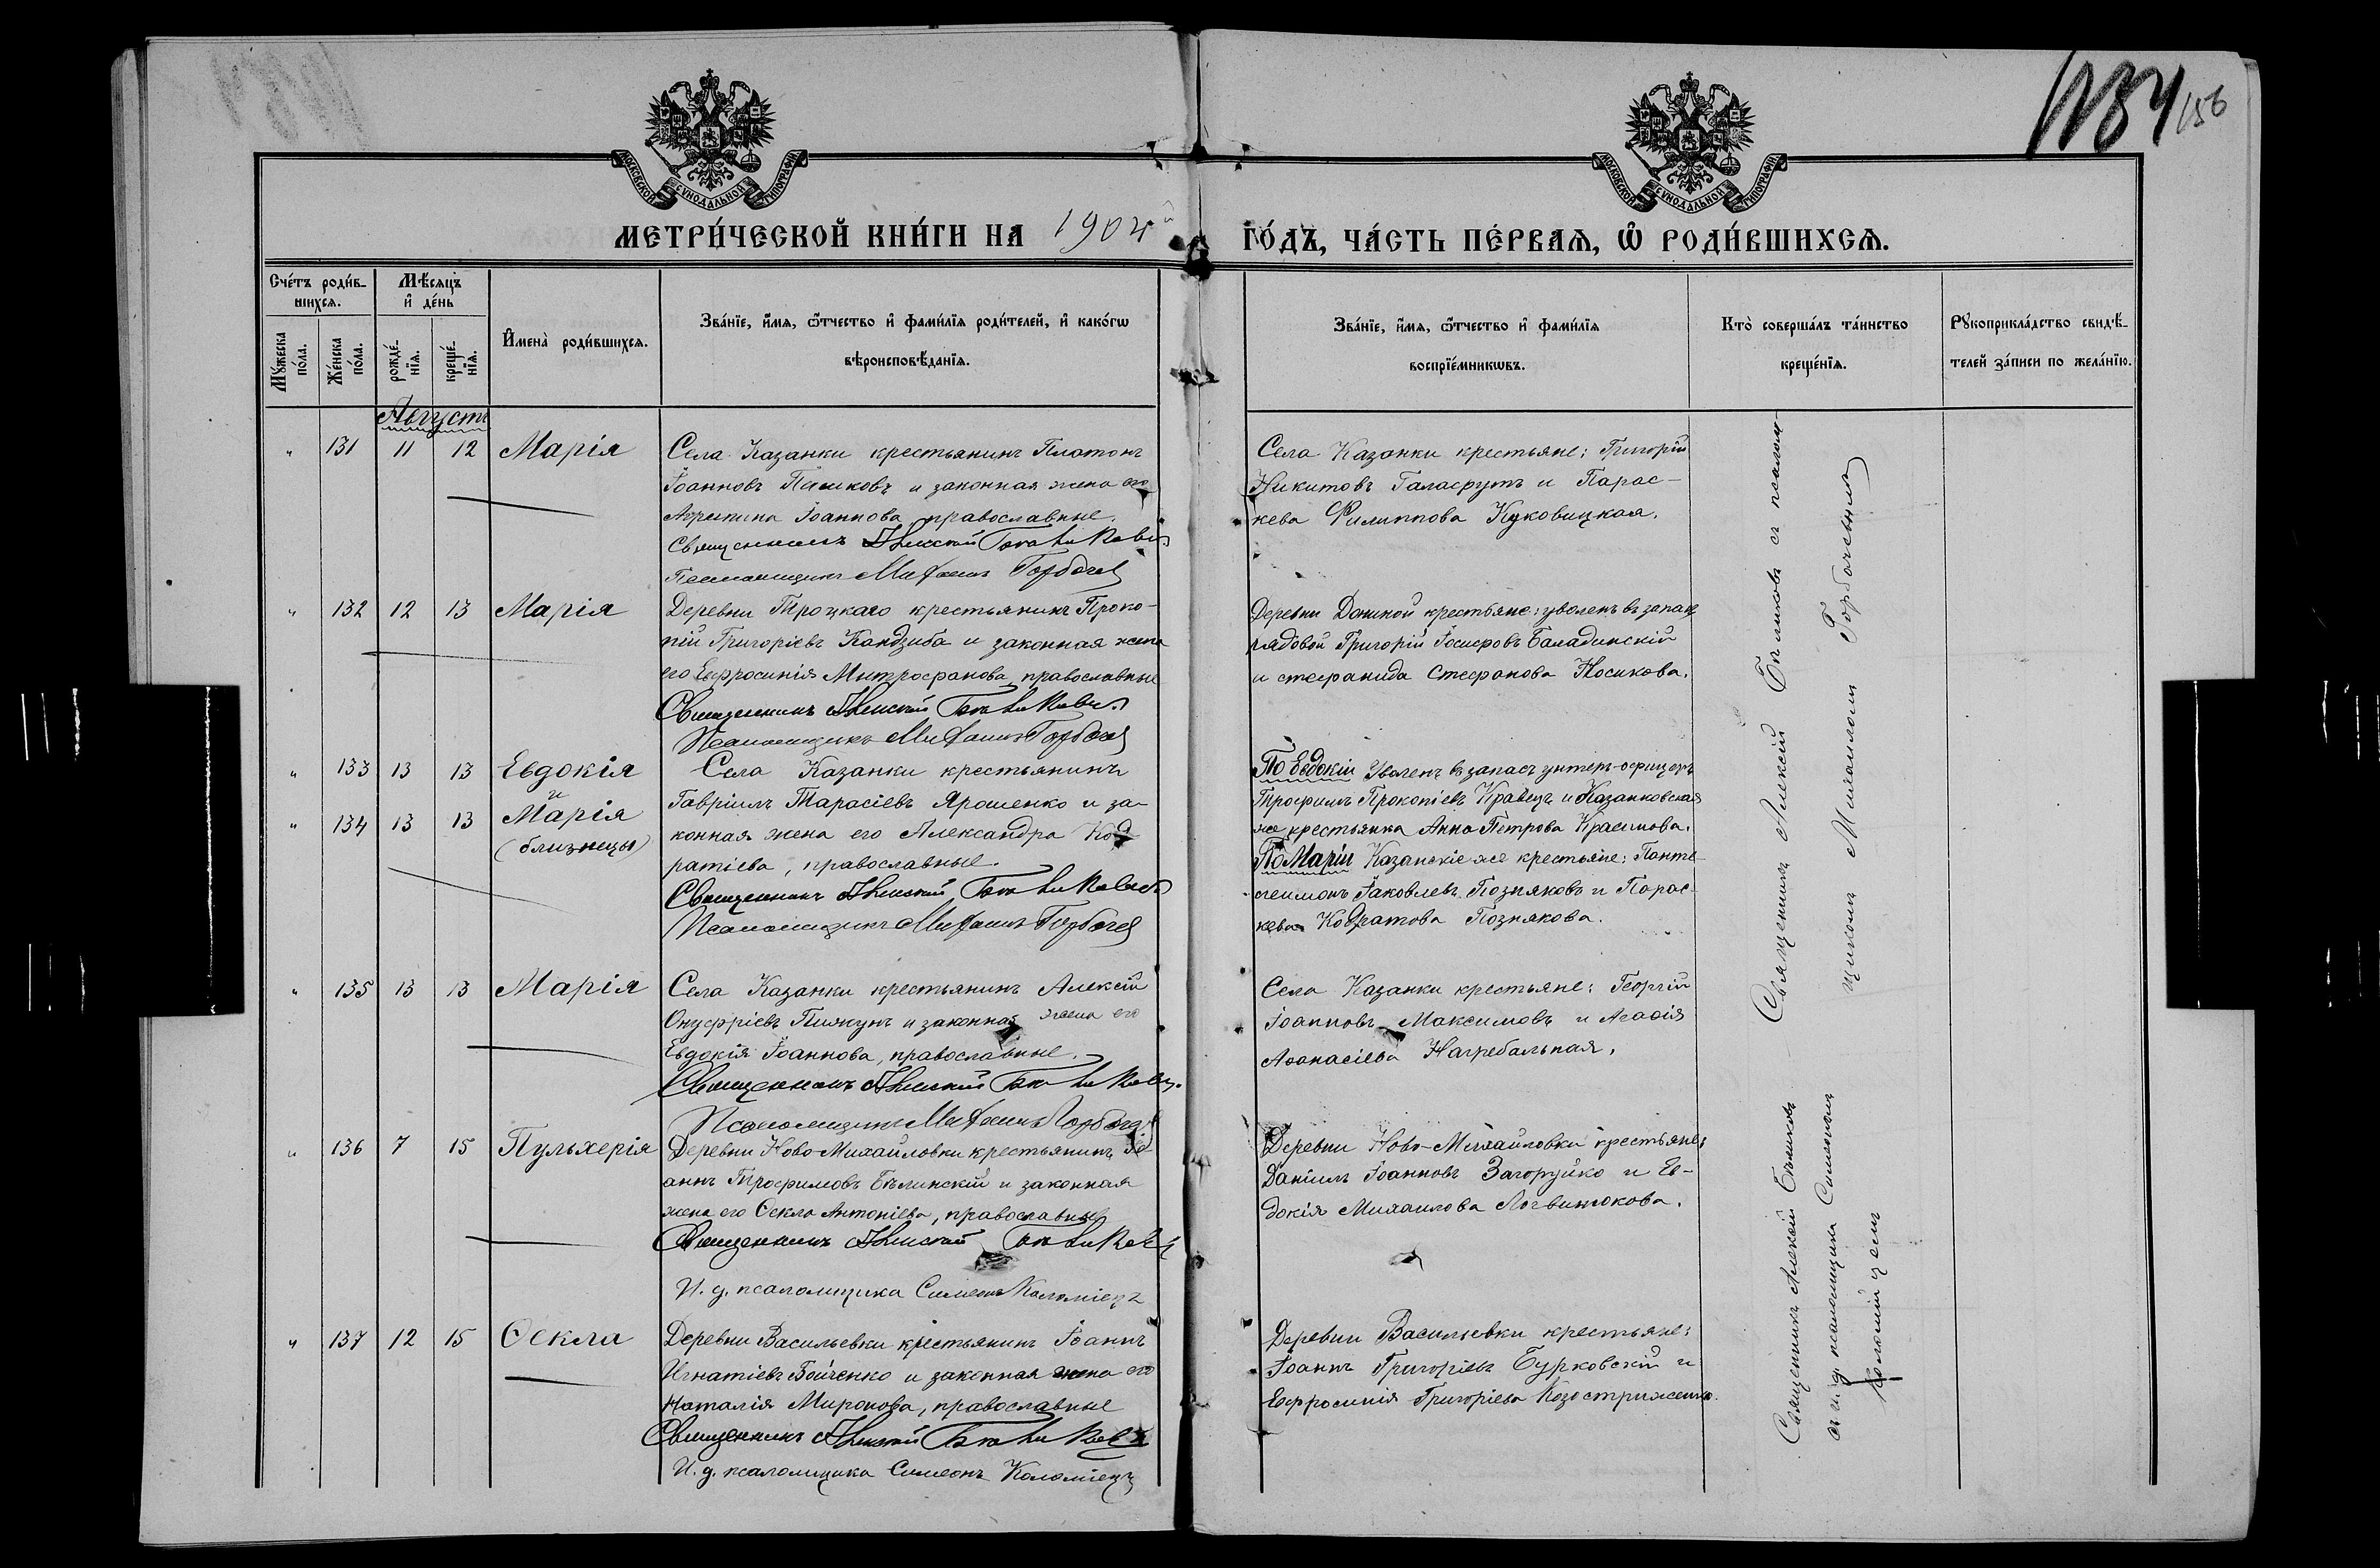 1184
156
МОСКОВСКОЙ СѴНОДАЛЬНОЙ ТИПОГРАФІИ
МОСКОВСКОЙ СѴНОДАЛЬНОЙ ТИПОГРАФІИ
МЕТРИ́ЧЕСКОЙ КНИ́ГИ НА 1904й
ГО́ДЪ, ЧА́СТЬ ПЕ́РВАѦ, Ѡ҆ РОДИ́ВШИХСѦ.
Сче́тъ роди́в-
шихсѧ.
Мꙋжеска по́ла.
Же́нска по́ла.
Мѣ́сѧцъ
и҆ де́нь
рожде́-нїѧ.
креще́-нїѧ.
И҆мена̀ роди́вшихсѧ.
Зва́нїе, и҆́мѧ, ѻ҆́тчество и҆ фами́лїѧ роди́телей, и҆ како́гѡ
вѣроисповѣ́данїѧ.
Зва́нїе, и҆́мѧ, ѻ҆́тчество и҆ фами́лїѧ
воспрїе́мникѡвъ.
Кто̀ соверша́лъ та́инство
креще́нїѧ.
Рꙋкоприкла́дство свидѣ́-
телей за́писи по жела́нїю.
Августъ
" 131 11 12 Марія
Села Казанки крестьянинъ Платонъ
Іоанновъ Пашковъ и законная жена его
Агрипина Іоаннова, православные.
Священникъ Алексій Бѣликовъ
Псаломщикъ Михаилъ Горбачев
Села Казанки крестьяне: Григорій
Никитовъ Галасрутъ и Парас-
кева Филиппова Куковицкая.
" 132 12 13 Марія
Деревни Троцкаго крестьянинъ Проко-
пій Григоріевъ Кандзюба и законная жена
его Евфросинія Митрофанова, православные
Священникъ Алексій Бѣликовъ
Псаломщикъ Михаилъ Горбачев
Деревни Доминой крестьяне: уволенъ въ запасъ
рядовой Григорій Іосифовъ Баладинскій
и стефанида Стефанова Носикова.
" 133 13 13 Евдокія
и
" 134 13 13 Марія
(близнецы)
Села Казанки крестьянинъ
Гавріилъ Тарасіевъ Ярошенко и за-
конная жена его Александра Код-
ратіева, православные.
Священникъ Алексій Бѣликовъ
Псаломщикъ Михаилъ Горбачев
По Евдокіи Уволенъ въ запасъ унтеръ-офицеръ
Трофимъ Прокопіевъ Кравецъ и Казанковская
же крестьянка Анна Петрова Красимова.
По Маріи Казанскіе же крестьяне: Панте-
леимонъ Іаковлевъ Позняковъ и Парас-
кева Кодратова Познякова.
Священникъ Алексій Бѣликовъ съ псалом-
щикомъ Михаиломъ Горбачевымъ
" 135 13 13 Марія
Села Казанки крестьянинъ Алексій
Онуфріевъ Пижкунъ и законная жена его
Евдокія Іоаннова, православные.
Священникъ Алексій Бѣликовъ
Псаломщикъ Михаилъ Горбачев
Села Казанки крестьяне: Георгій
Іоанновъ Максимовъ и Агафія
Аѳанасіева Нагребальная.
" 136 7 15 Пульхерія
Деревни Ново-Михайловки крестьянинъ Іо-
аннъ Трофимовъ Бѣлинскій и законная
жена его Ѳекла Антоніева, православные
Священникъ Алексій Бѣликовъ
И. д. псаломщика Симеонъ Коломіецъ
Деревни Ново-Михайловки крестьяне:
Даніилъ Іоанновъ Загоруйко и Ев-
докія Михаилова Логвинюкова.
" 137 12 15 Ѳекла
Деревни Васильевки крестьянинъ Іоаннъ
Игнатіевъ Бойченко и законная жена его
Наталія Миронова, православные
Священникъ Алексій Бѣликовъ
И. д. псаломщика Симеонъ Коломіецъ
Деревни Васильевки крестьяне:
Іоаннъ Григоріевъ Бурковскій и
Евфросинія Григоріева
Священникъ Алексій Бѣликовъ
съ и. д. псаломщика Симеономъ
Коломійцемъ